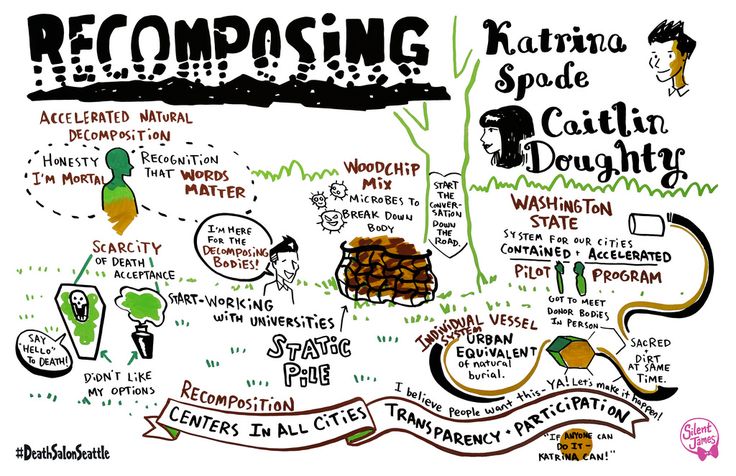 RECOMPOSING
Katrina
Spade
Caitlin
Doughty
ACCELERATED NATURAL
DECOMPOSITION
HONESTY
I'M MORTAL
RECOGNITION
THAT WORDS
MATTER
SCARCITY
OF DEATH
ACCEPTANCE
SAY
"HELLO"
TO DEATH!
DIDN'T LIKE
MY OPTIONS
I'M HERE
FOR THE
DECOMPOSING
BODIES!
START-WORKING
WITH UNIVERSITIES
WOODCHIP
MIX
MICROBES TO
BREAK DOWN
BODY
STATIC
PILE
START
THE
CONVER-
SATION
DOWN
THE
ROAD.
WASHINGTON
STATE
SYSTEM FOR OUR CITIES
CONTAINED + ACCELERATED
PILOT PROGRAM
GOT TO MEET
DONOR BODIES
IN PERSON
SACRED
+
DIRT
AT SAME
TIME.
INDIVIDUAL VESSEL
SYSTEM
URBAN
EQUIVALENT
of natural
burial.
RECOMPOSITION
CENTERS IN ALL CITIES
I believe people want this-YA! Let's make it happen!
TRANSPARENCY + PARTICIPATION
"IF ANYONE CAN
DO IT-
KATRINA CAN!"
#DeathSalonSeattle
Silent
James